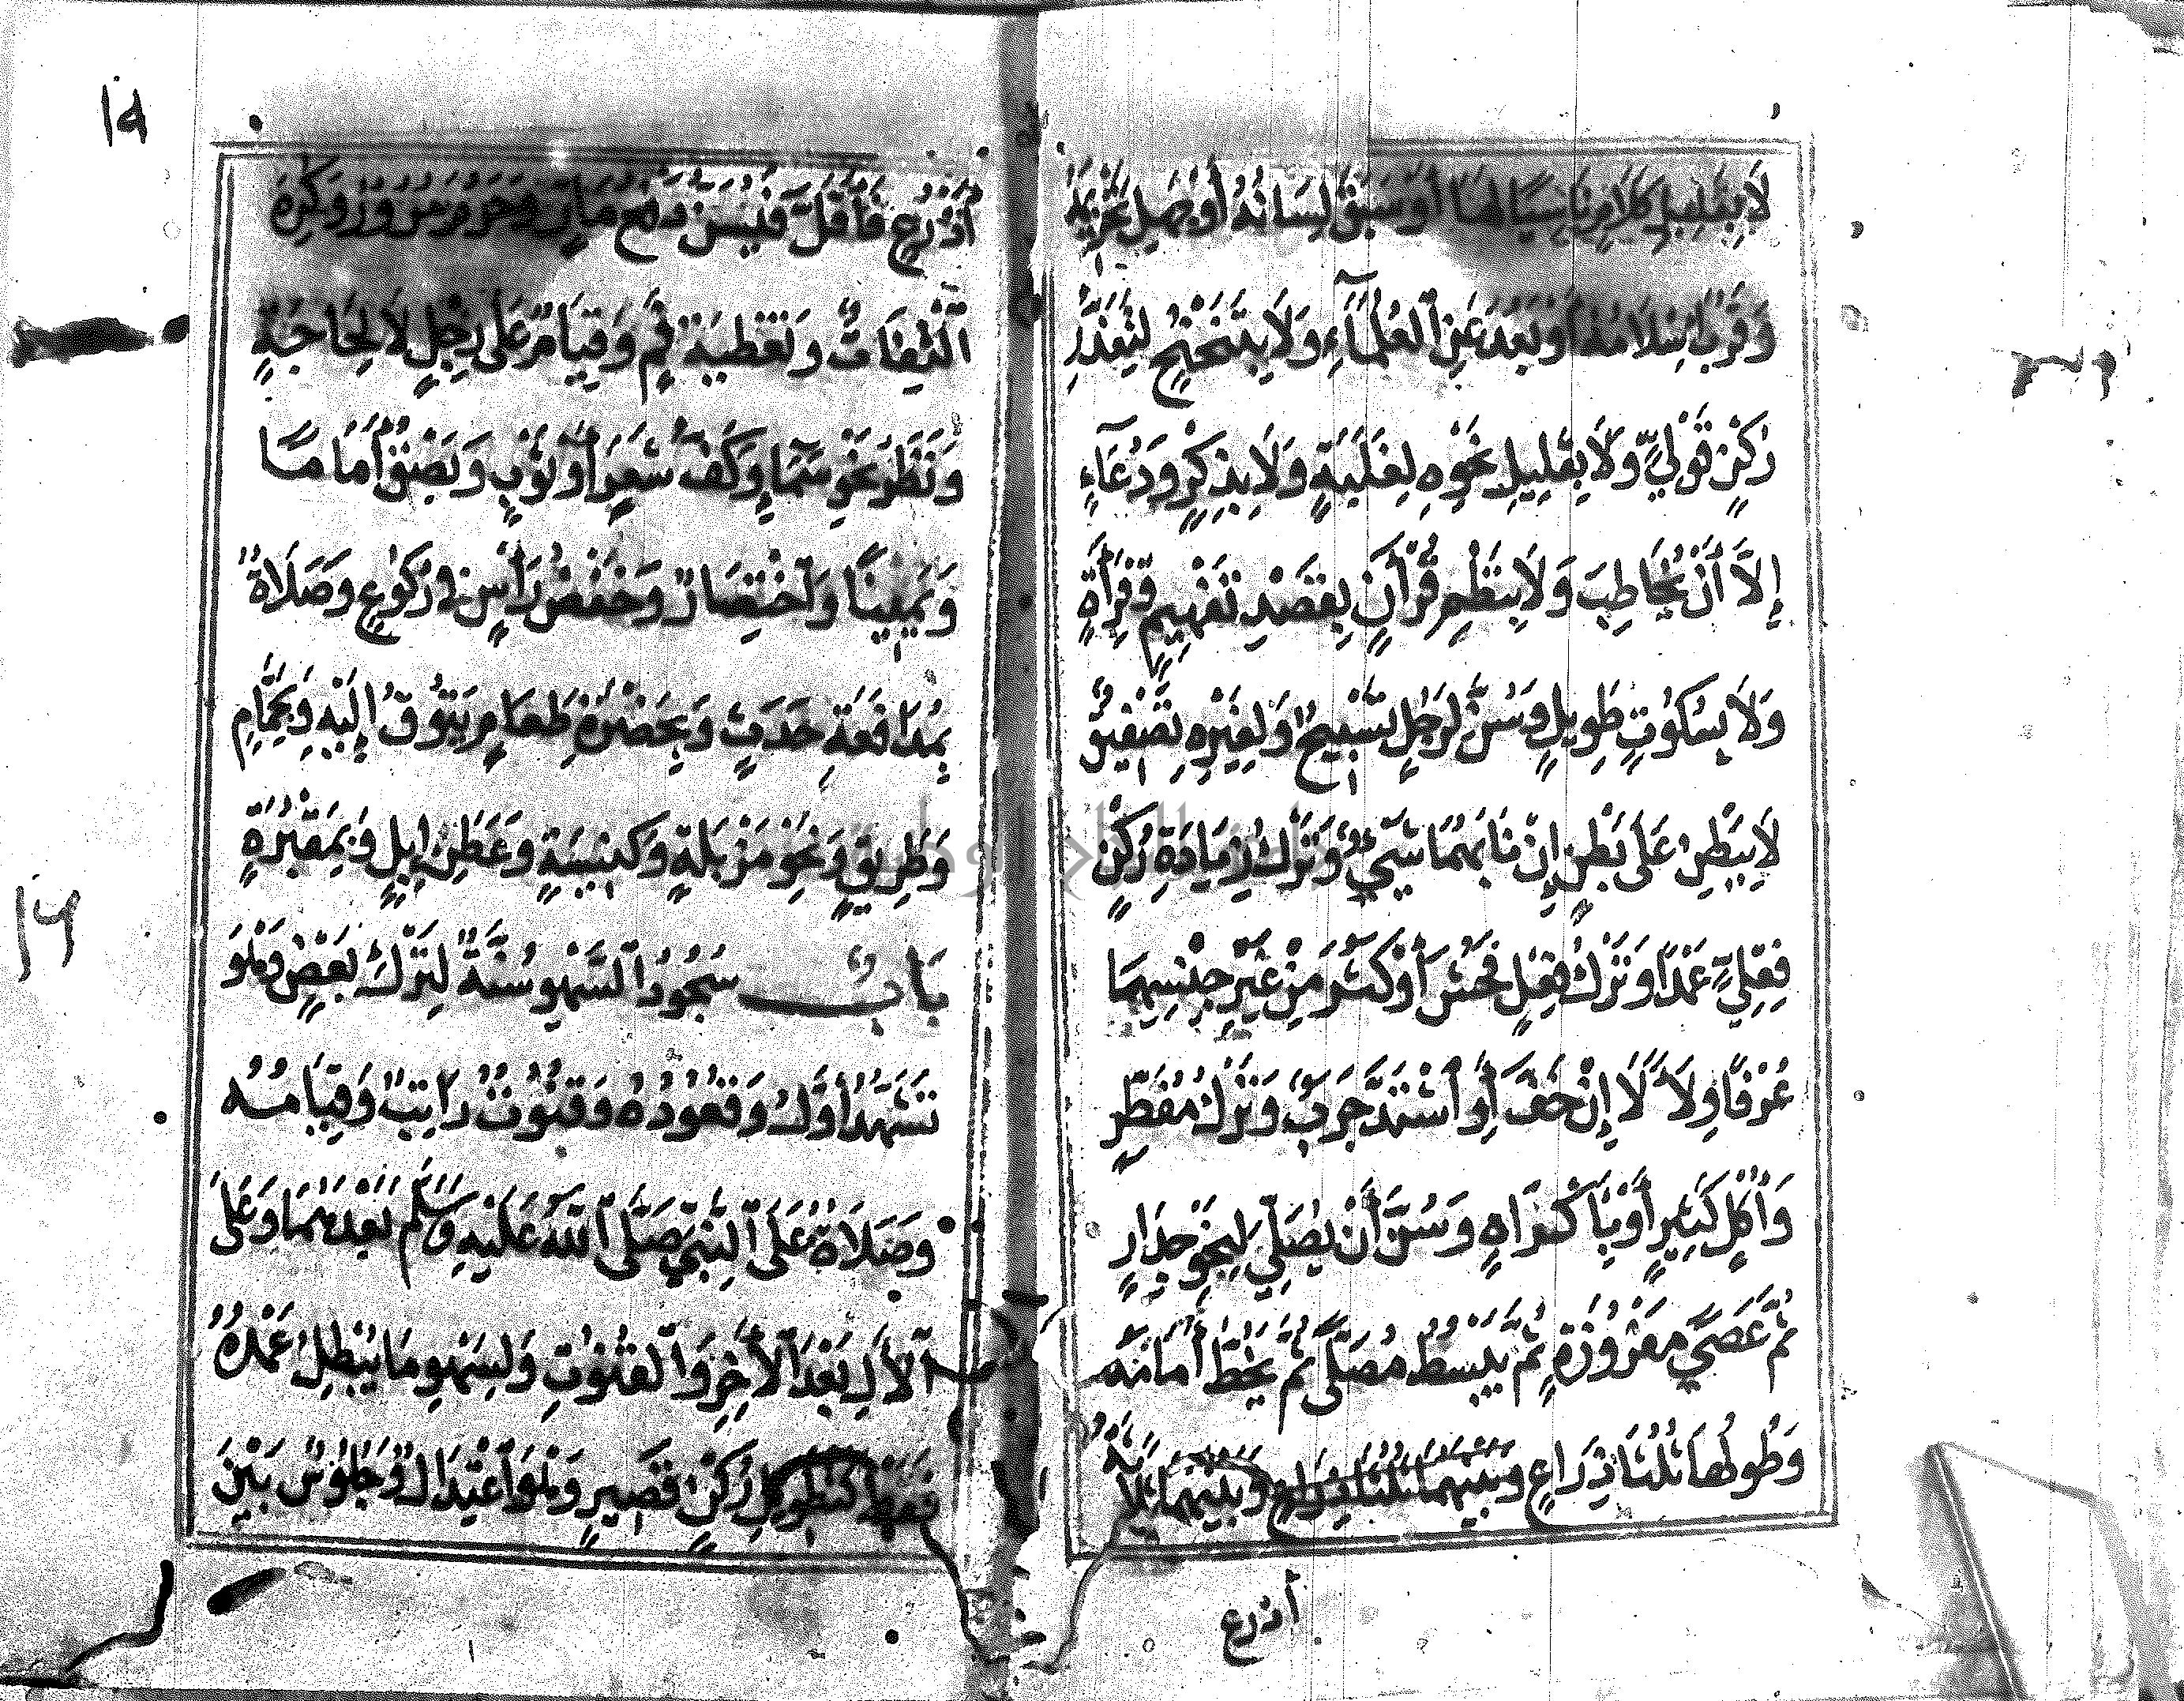 لَا بِقَلِيلِ كَلَامٍ نَاسِيًا لَهَا أَوْ سَبَقَ لِسَانُهُ أَوْ جَهِلَ تَحْرِيمَهُ
وَقَرُبَ إِسْلَامُهُ أَوْ بَعُدَ عَنِ ٱلْعُلَمَآءِ وَلَا بِتَنَحْنُحٍ لِتَعَذُّرِ
رُكْنٍ قَوْلِيٍّ وَلَا بِقَلِيلِ نَحْوِهِ لِغَلَبَةٍ وَلَا بِذِكْرٍ وَدُعَآءٍ
إِلَّا أَنْ يُخَاطِبَ وَلَا بِنَظْمِ قُرْأَنٍ بِقَصْدِ تَفْهِيمٍ وَقِرَأَةٍ
وَلَا بِسُكُوتٍ طَوِيلٍ وَسُنَّ لِرَجُلٍ تَسْبِيحٌ وَلِغَيْرِهِ تَصْفِيقٌ
لَا بِبَطْنٍ عَلَى بَطْنٍ إِنْ نَابَهُمَا شَيْءٌ وَتَرْكُ زِيَادَةِ رُكْنٍ
فِعْلِيٍّ عَمْدًا وَتَرْكُ فِعْلٍ فَحُشَ أَوْ كَثُرَ مِنْ غَيْرِ جِنْسِهِمَا
عُرْفًا وِلَاءً لَا إِنْ خَفَّ أَوِ ٱشْتَدَّ جَرَبٌ وَتَرْكُ مُفَطِّرٍ
وَأَكْلٍ كَثِيرٍ أَوْ بِإِكْرَاهٍ وَسُنَّ أَنْ يُصَلِّيَ لِنَحْوِ جِدَارٍ
ثُمَّ عَصًى مَغْرُوزَةٍ ثُمَّ يَبْسُطُ مُصَلًّى ثُمَّ يَخُطُّ أَمَامَهُ
وَطُولُهَا ثُلُثَا ذِرَاعٍ وَبَيْنَهُمَا ثُلُثَا ذِرَاعٍ وَبَيْنَهُمَا ثَلَاثَةُ
أذرع
١٨
أَذْرُعٍ فَأَقَلَّ فَيُسَنُّ دَفْعُ مَارٍّ وَحَرُمَ مُرُورٌ وَكُرِهَ
ٱلْتِفَاتٌ وَتَغْطِيَةُ فَمٍ وَقِيَامٌ عَلَى رِجْلٍ لَا لِحَاجَةٍ
وَنَظَرُ نَحْوِ سَمَآءٍ وَكَفُّ شَعَرٍ أَوْ ثَوْبٍ وَبَصْقٌ أَمَامًا
وَيَمِينًا وَٱخْتِصَارٌ وَخَفْضُ رَأْسٍ فِي رُكُوعٍ وَصَلَاةٌ
بِمُدَافَعَةِ حَدَثٍ وَبِحَضْرَةِ طَعَامٍ يَتُوقُ إِلَيْهِ وَبِحَمَّامٍ
وَطَرِيقٍ وَنَحْوِ مَزْبَلَةٍ وَكَنِيسَةٍ وَعَطَنِ إِبِلٍ وَبِمَقْبَرَةٍ
بَابٌ سُجُودُ ٱلسَّهْوِ سُنَّةٌ لِتَرْكِ بَعْضٍ وَهُوَ
تَشَهُّدٌ أَوَّلُ وَقُعُودُهُ وَقُنُوتٌ رَاتِبٌ وَقِيَامُهُ
وَصَلَاةٌ عَلَى ٱلنَّبِيِّ صَلَّى ٱللَّهُ عَلَيْهِ وَسَلَّمَ بَعْدَهُمَا وَعَلَى
ٱلْآلِ بَعْدَ ٱلْأَخِرِ وَٱلْقُنُوتِ وَلِسَهْوِ مَا يُبْطِلُ عَمْدُهُ
فَقَطْ كَتَطْوِيلِ رُكْنٍ قَصِيرٍ وَهُوَ ٱعْتِدَالٌ وَجُلُوسٌ بَيْنَ